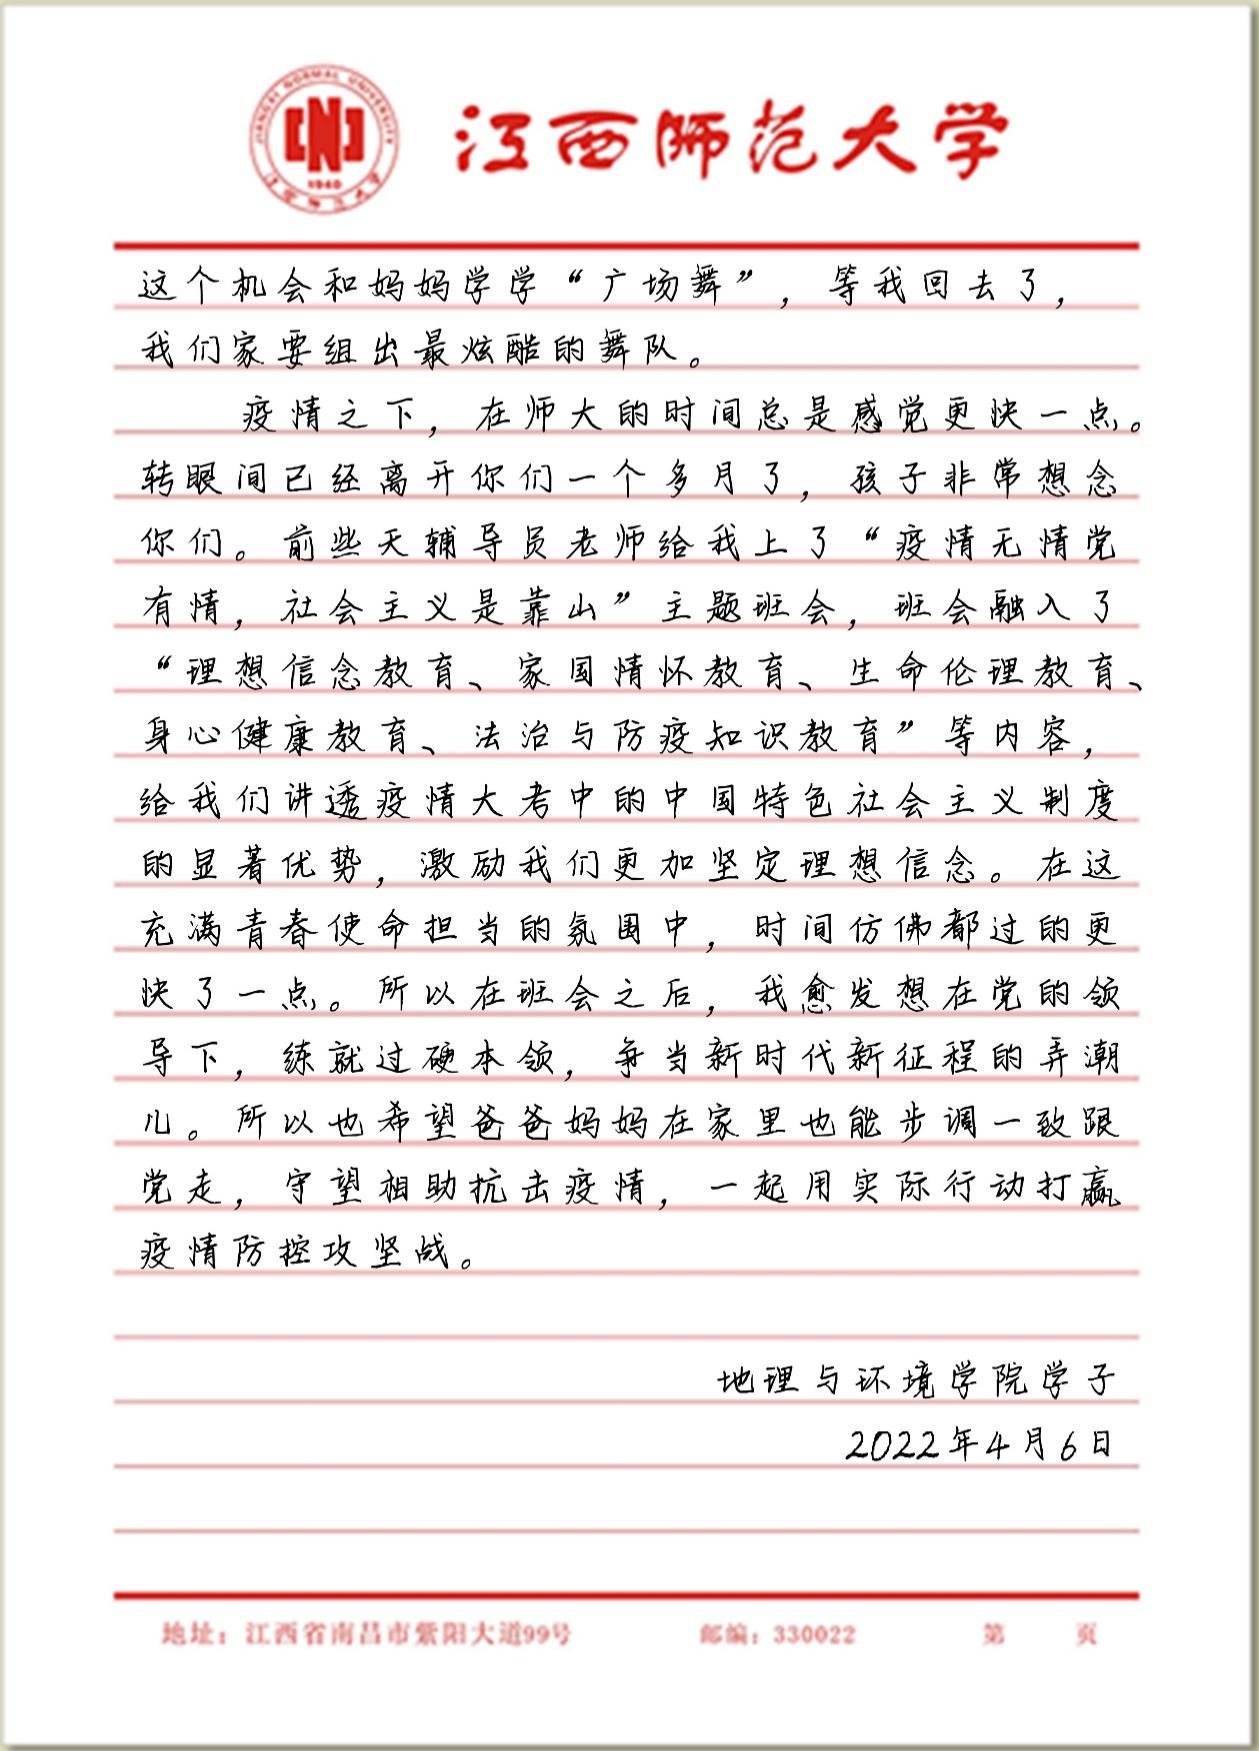 JIANGXI NORMAL UNIVERSITY
1940
江西师范大学
江西师范大学
这个机会和妈妈学学“广场舞”，等我回去了，
我们家要组出最炫酷的舞队。
疫情之下，在师大的时间总是感觉更快一点。
转眼间已经离开你们一个多月了，孩子非常想念
你们。前些天辅导员老师给我上了“疫情无情党
有情，社会主义是靠山”主题班会，班会融入了
“理想信念教育、家国情怀教育、生命伦理教育、
身心健康教育、法治与防疫知识教育”等内容，
给我们讲透疫情大考中的中国特色社会主义制度
的显著优势，激励我们更加坚定理想信念。在这
充满青春使命担当的氛围中，时间仿佛都过的更
快了一点。所以在班会之后，我愈发想在党的领
导下，练就过硬本领，争当新时代新征程的弄潮
儿。所以也希望爸爸妈妈在家里也能步调一致跟
党走，守望相助抗击疫情，一起用实际行动打赢
疫情防控攻坚战。
地理与环境学院学子
2022年4月6日
地址：江西省南昌市紫阳大道99号 邮编：330022 第 页